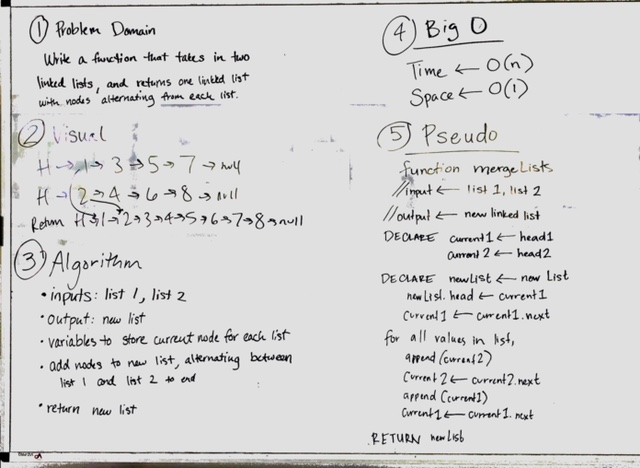 1 Problem Domain
Write a function that takes in two
linked lists, and returns one linked list
with nodes alternating from each list.
2 Visual
H → 1 → 3 → 5 → 7 → null
H → 2 → 4 → 6 → 8 → null
Return H → 1 → 2 → 3 → 4 → 5 → 6 → 7 → 8 → null
3 Algorithm
• inputs: list 1, list 2
• output: new list
• variables to store current node for each list
• add nodes to new list, alternating between
list 1 and list 2 to end
• return new list
4 Big O
Time ← O(n)
Space ← O(1)
5 Pseudo
function mergeLists
//input ← list 1, list 2
//output ← new linked list
DECLARE current1 ← head1
current2 ← head2
DECLARE newList ← new List
newList.head ← current1
current1 ← current1.next
for all values in list,
append(current2)
current2 ← current2.next
append(current1)
current1 ← current1.next
RETURN newList